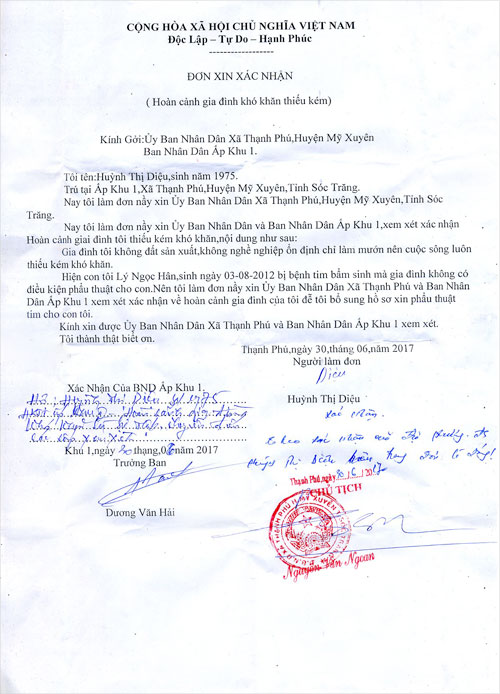 CỘNG HÒA XÃ HỘI CHỦ NGHĨA VIỆT NAM
Độc Lập – Tự Do – Hạnh Phúc
ĐƠN XIN XÁC NHẬN
( Hoàn cảnh gia đình khó khăn thiếu kém)
Kính Gởi:Ủy Ban Nhân Dân Xã Thạnh Phú,Huyện Mỹ Xuyên
Ban Nhân Dân Ấp Khu 1.
Tôi tên:Huỳnh Thị Diệu,sinh năm 1975.
Trú tại Ấp Khu 1,Xã Thạnh Phú,Huyện Mỹ Xuyên,Tỉnh Sóc Trăng.
Nay tôi làm đơn nầy xin Ủy Ban Nhân Dân Xã Thạnh Phú,Huyện Mỹ Xuyên,Tỉnh Sóc
Trăng.
Nay tôi làm đơn nầy xin Ủy Ban Nhân Dân và Ban Nhân Dân Ấp Khu 1,xem xét xác nhận
Hoàn cảnh giai đình tôi thiếu kém khó khăn,nội dung như sau:
Gia đình tôi không đất sản xuất,không nghề nghiệp ổn định chỉ làm mướn nên cuộc sông luôn
thiếu kém khó khăn.
Hiện con tôi Lý Ngọc Hân,sinh ngày 03-08-2012 bị bệnh tim bẩm sinh mà gia đình không có
điều kiện phẩu thuật cho con.Nên tôi làm đơn nầy xin Ủy Ban Nhân Dân Xã Thạnh Phú và Ban Nhân
Dân Ấp Khu 1 xem xét xác nhận về hoàn cảnh gia đình của tôi để tôi bổ sung hồ sơ xin phẩu thuật
tim cho con tôi.
Kính xin được Ủy Ban Nhân Dân Xã Thạnh Phú và Ban Nhân Dân Ấp Khu 1 xem xét.
Tôi thành thật biết ơn.
Thạnh Phú,ngày 30,tháng 06,năm 2017
Người làm đơn
Diệu
Xác Nhận Của BND Ấp Khu 1.
Huỳnh Thị Diệu
Hộ: Huỳnh Thị Diệu 1975
Xác nhận
Khu 1,ngày 30,tháng 06,năm 2017
Trưởng Ban
Thạnh Phú,ngày 30/6/2017
CHỦ TỊCH
Dương Văn Hải
Nguyễn Văn Ngoan